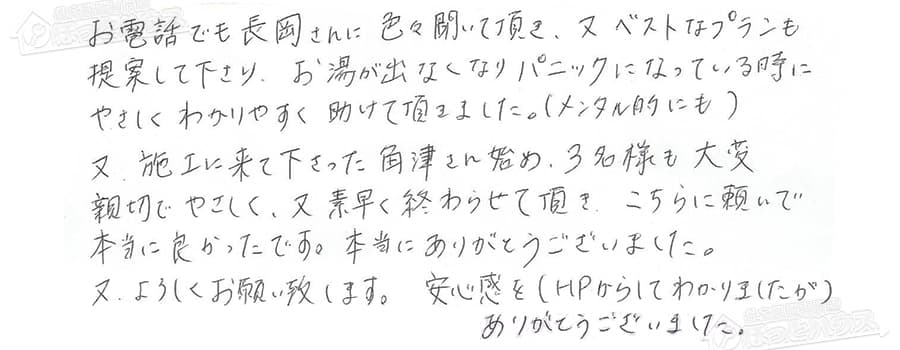 お電話でも長岡さんに色々聞いて頂き、又ベストなプランも
提案して下さり、お湯が出なくなりパニックになっている時に
やさしくわかりやすく助けて頂きました。(メンタル的にも)
又、施工に来て下さった角津さん始め、3名様も大変
親切でやさしく、又素早く終わらせて頂き、こちらに頼いで
本当に良かったです。本当にありがとうございました。
又、ようしくお願い致します。安心感を(HPからしてわかりましたが)
ありがとうございました。